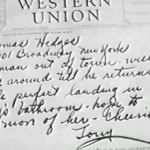 WESTERN
UNION
mas Hedges
01 Broadway New York
man out of town. will
around till he returns
perfect landing in
's bathroom - hope to
more of her - Cheerio
Tony